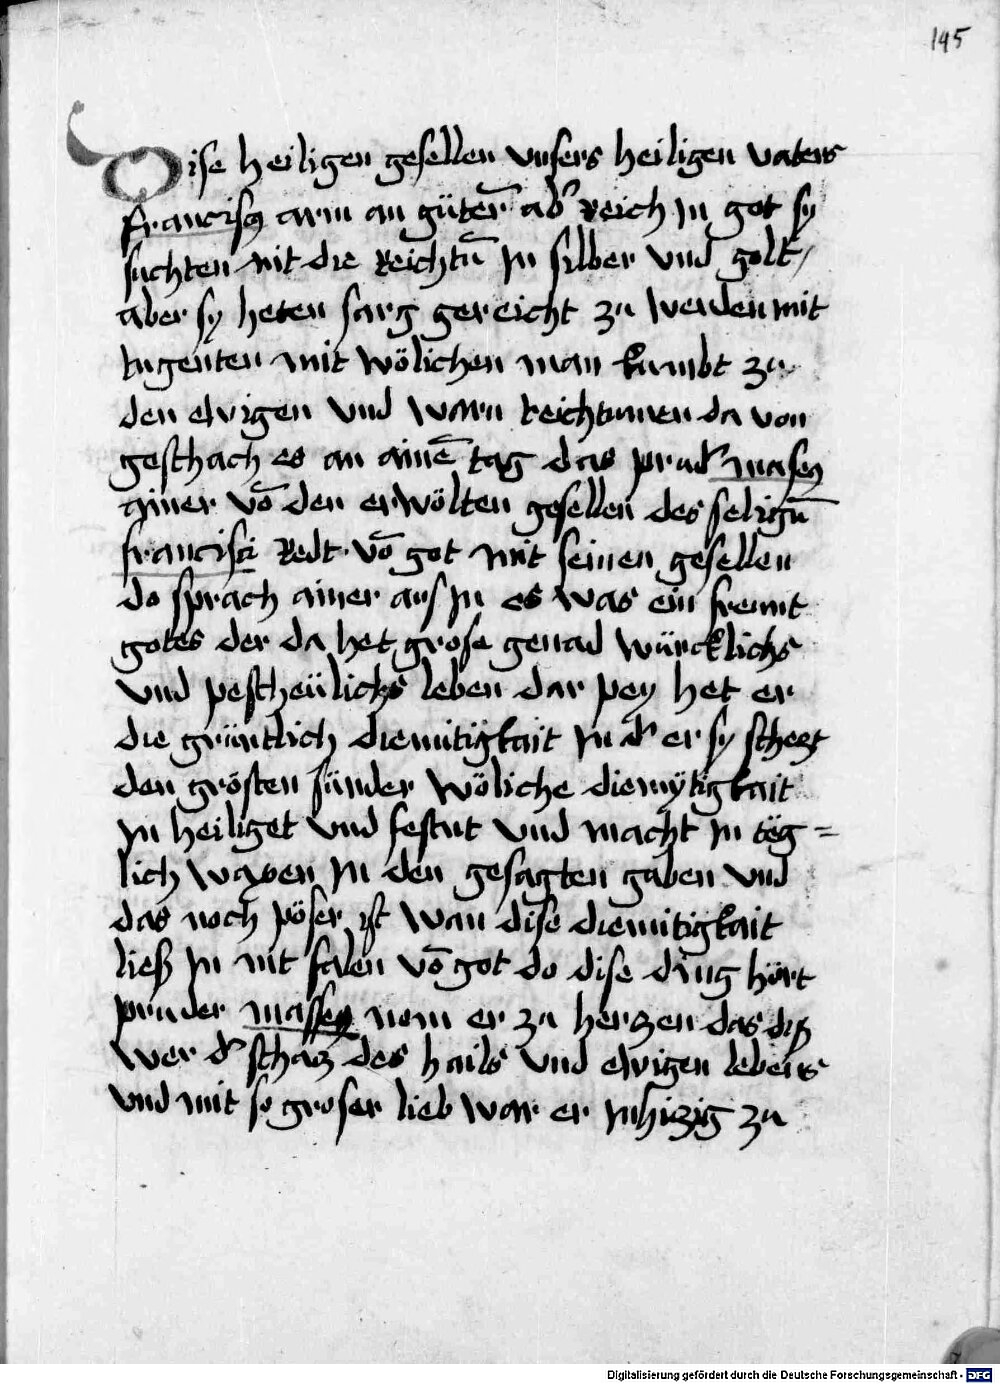 195
Dise heiligen gesellen vnsers heiligen vaters
franciscy arm an gütern̄ abʳ Reich jn got sy
suchten nit die Reichtū jn silber vnd golt /
aber sy heten sarg gereicht zu werden mit
tugenten mit wölichen man kumbt zu
den ewigen vnd warn reichtumen da von
geschach es an ainē tag das prudʳ masey
ainer vō den erwölten gesellen des seligū
francisci Redt vō got mit seinen gesellen
do sprach ainer aus jn es was ein freunt
gotes der da het grose genad würcklichs
vnd pescheülichs leben dar pey het er
die grüntlich diemütigkait jn dʳ er sy schezt
den grösten sünder wöliche diemytigkait
jn heiliget vnd festnt vnd macht jn teg=
lich waxen jn den gesagten gaben vnd
das noch pöser ist wan dise diemitigkait
ließ jn nit falen vō got do dise ding hört
pruder massey nom er zu herzen das diß
wer dʳ schaz des hails vnd ewigen lebens
vnd mit so groser lieb war er jnhizig zu
Digitalisierung gefördert durch die Deutsche Forschungsgemeinschaft - DFG